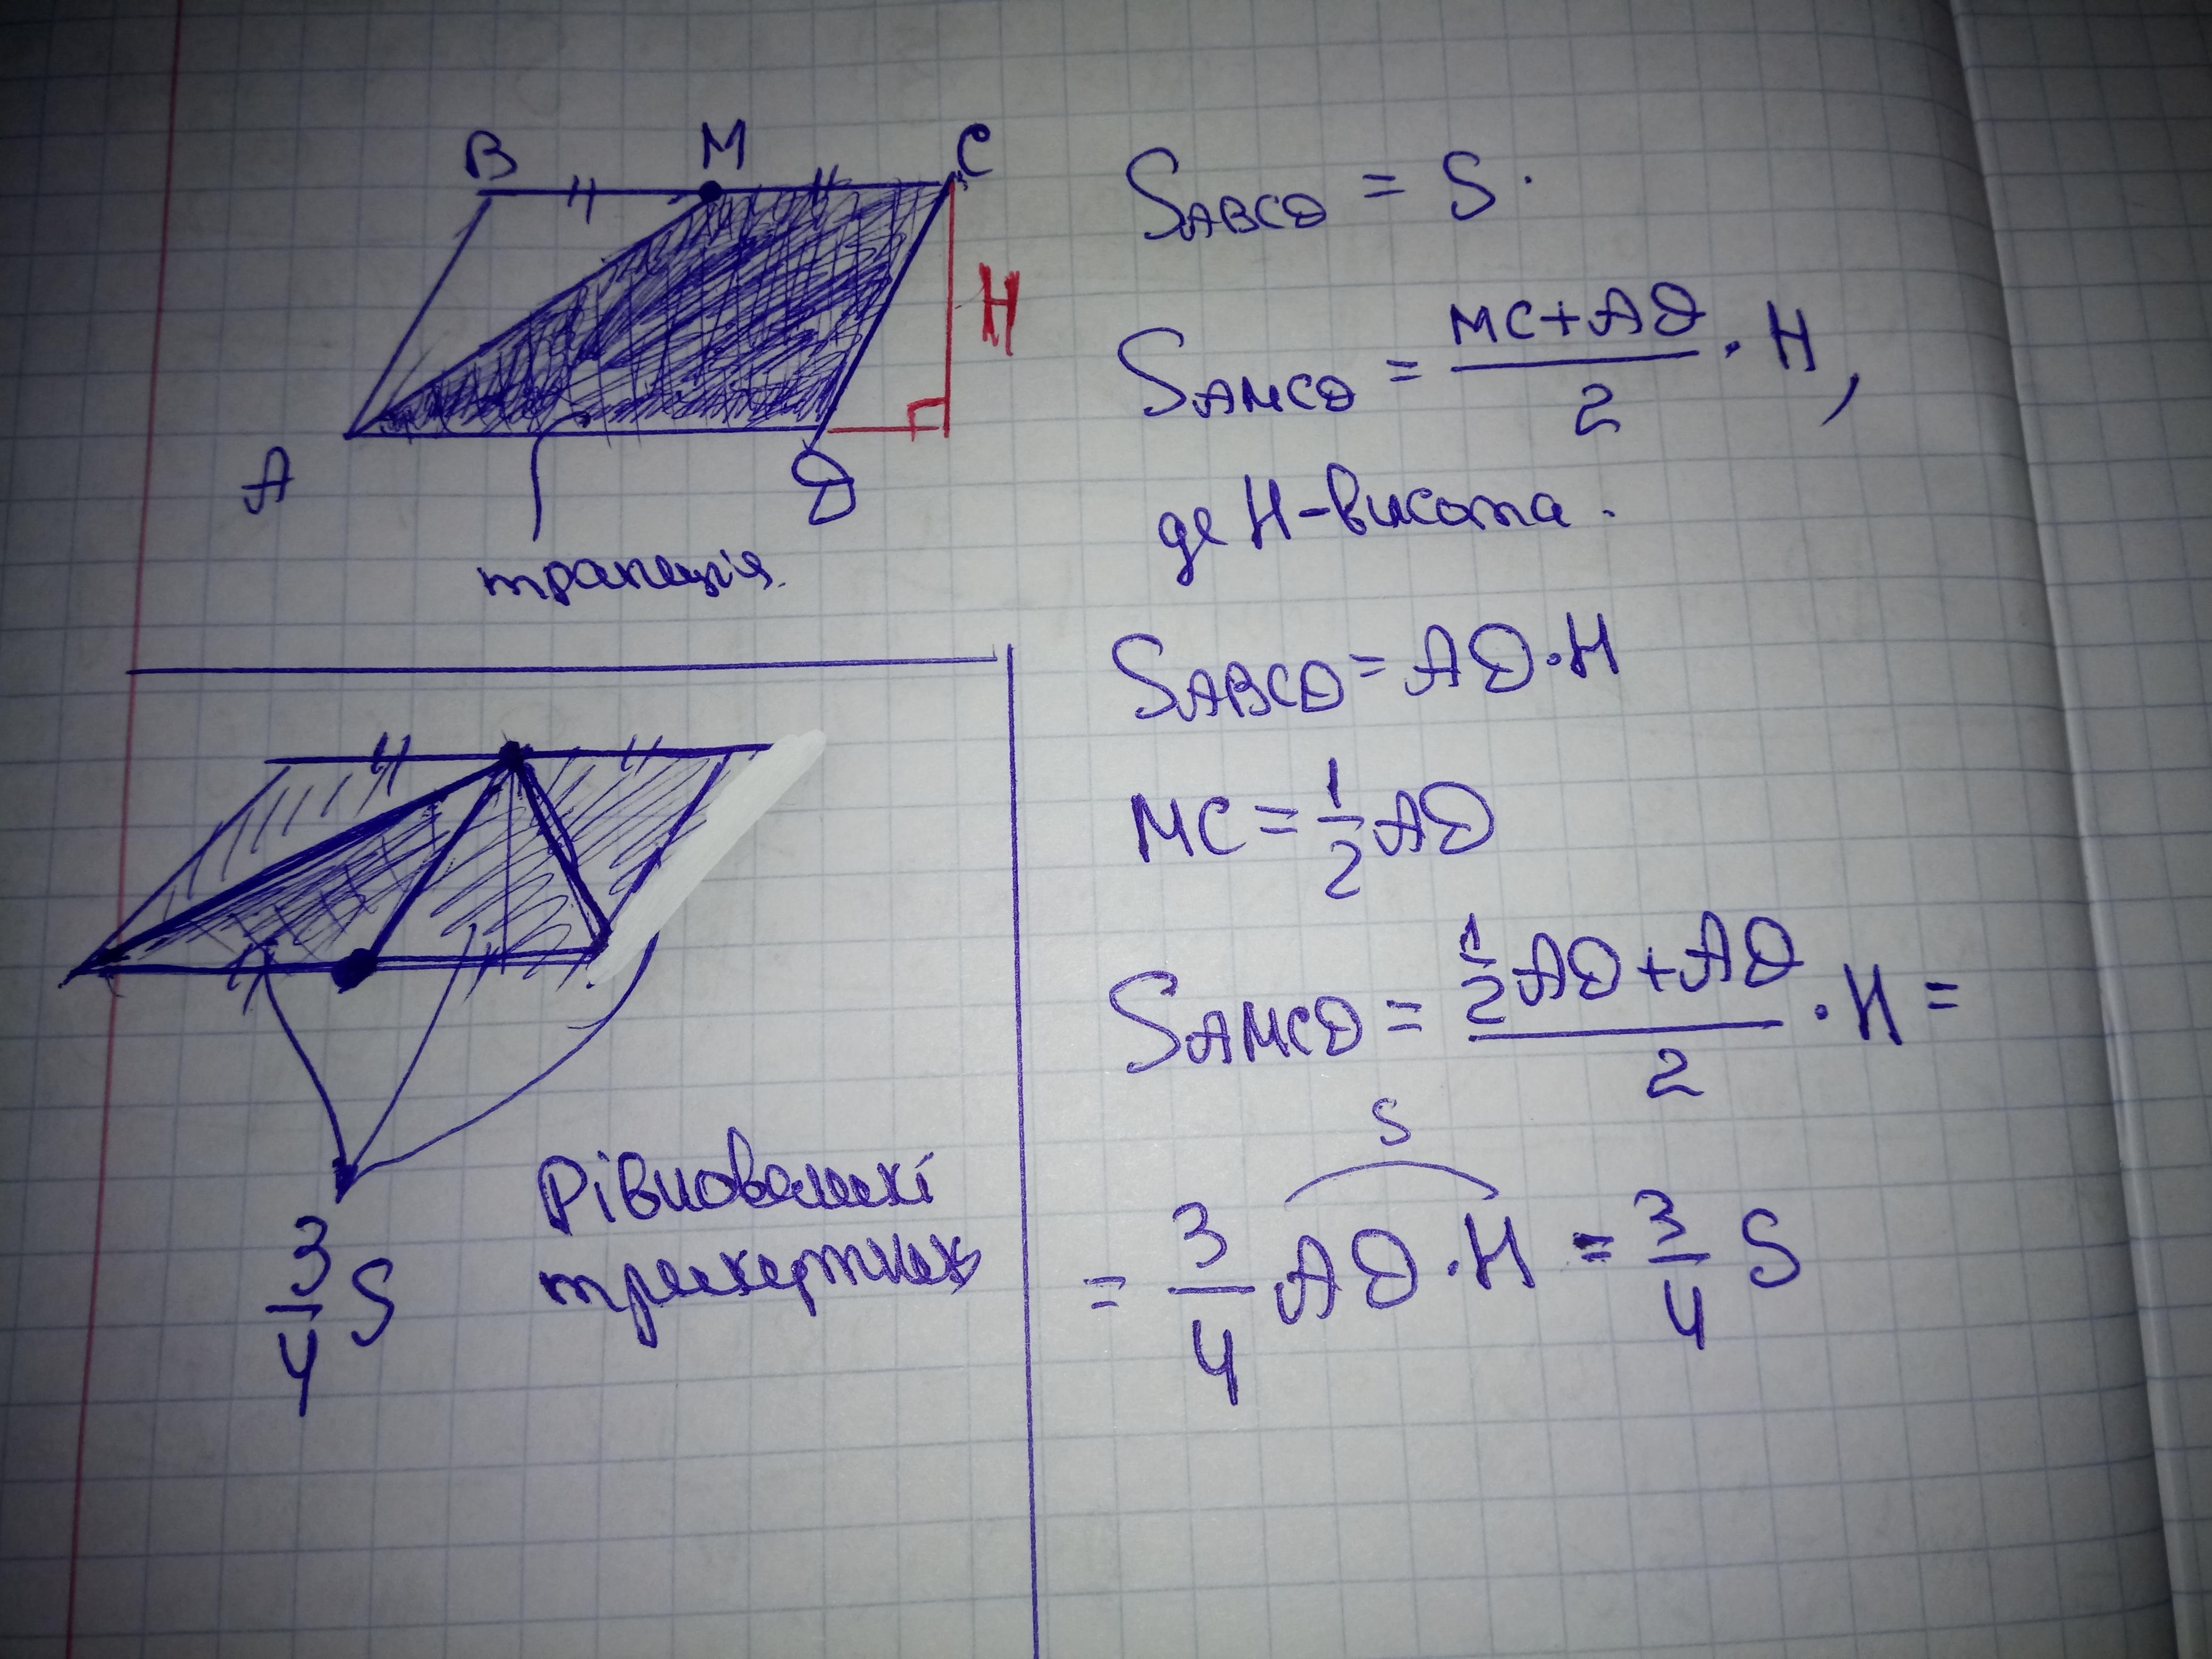 B M C
H
A D
трапеція.
S_ABCD = S.
S_AMCD = (MC+AD)/2 · H,
де H-висота.
S_ABCD = AD·H
MC = 1/2 AD
S_AMCD = (1/2 AD + AD)/2 · H =
S
= 3/4 AD·H = 3/4 S
3/4 S
Рівновеликі
трикутник